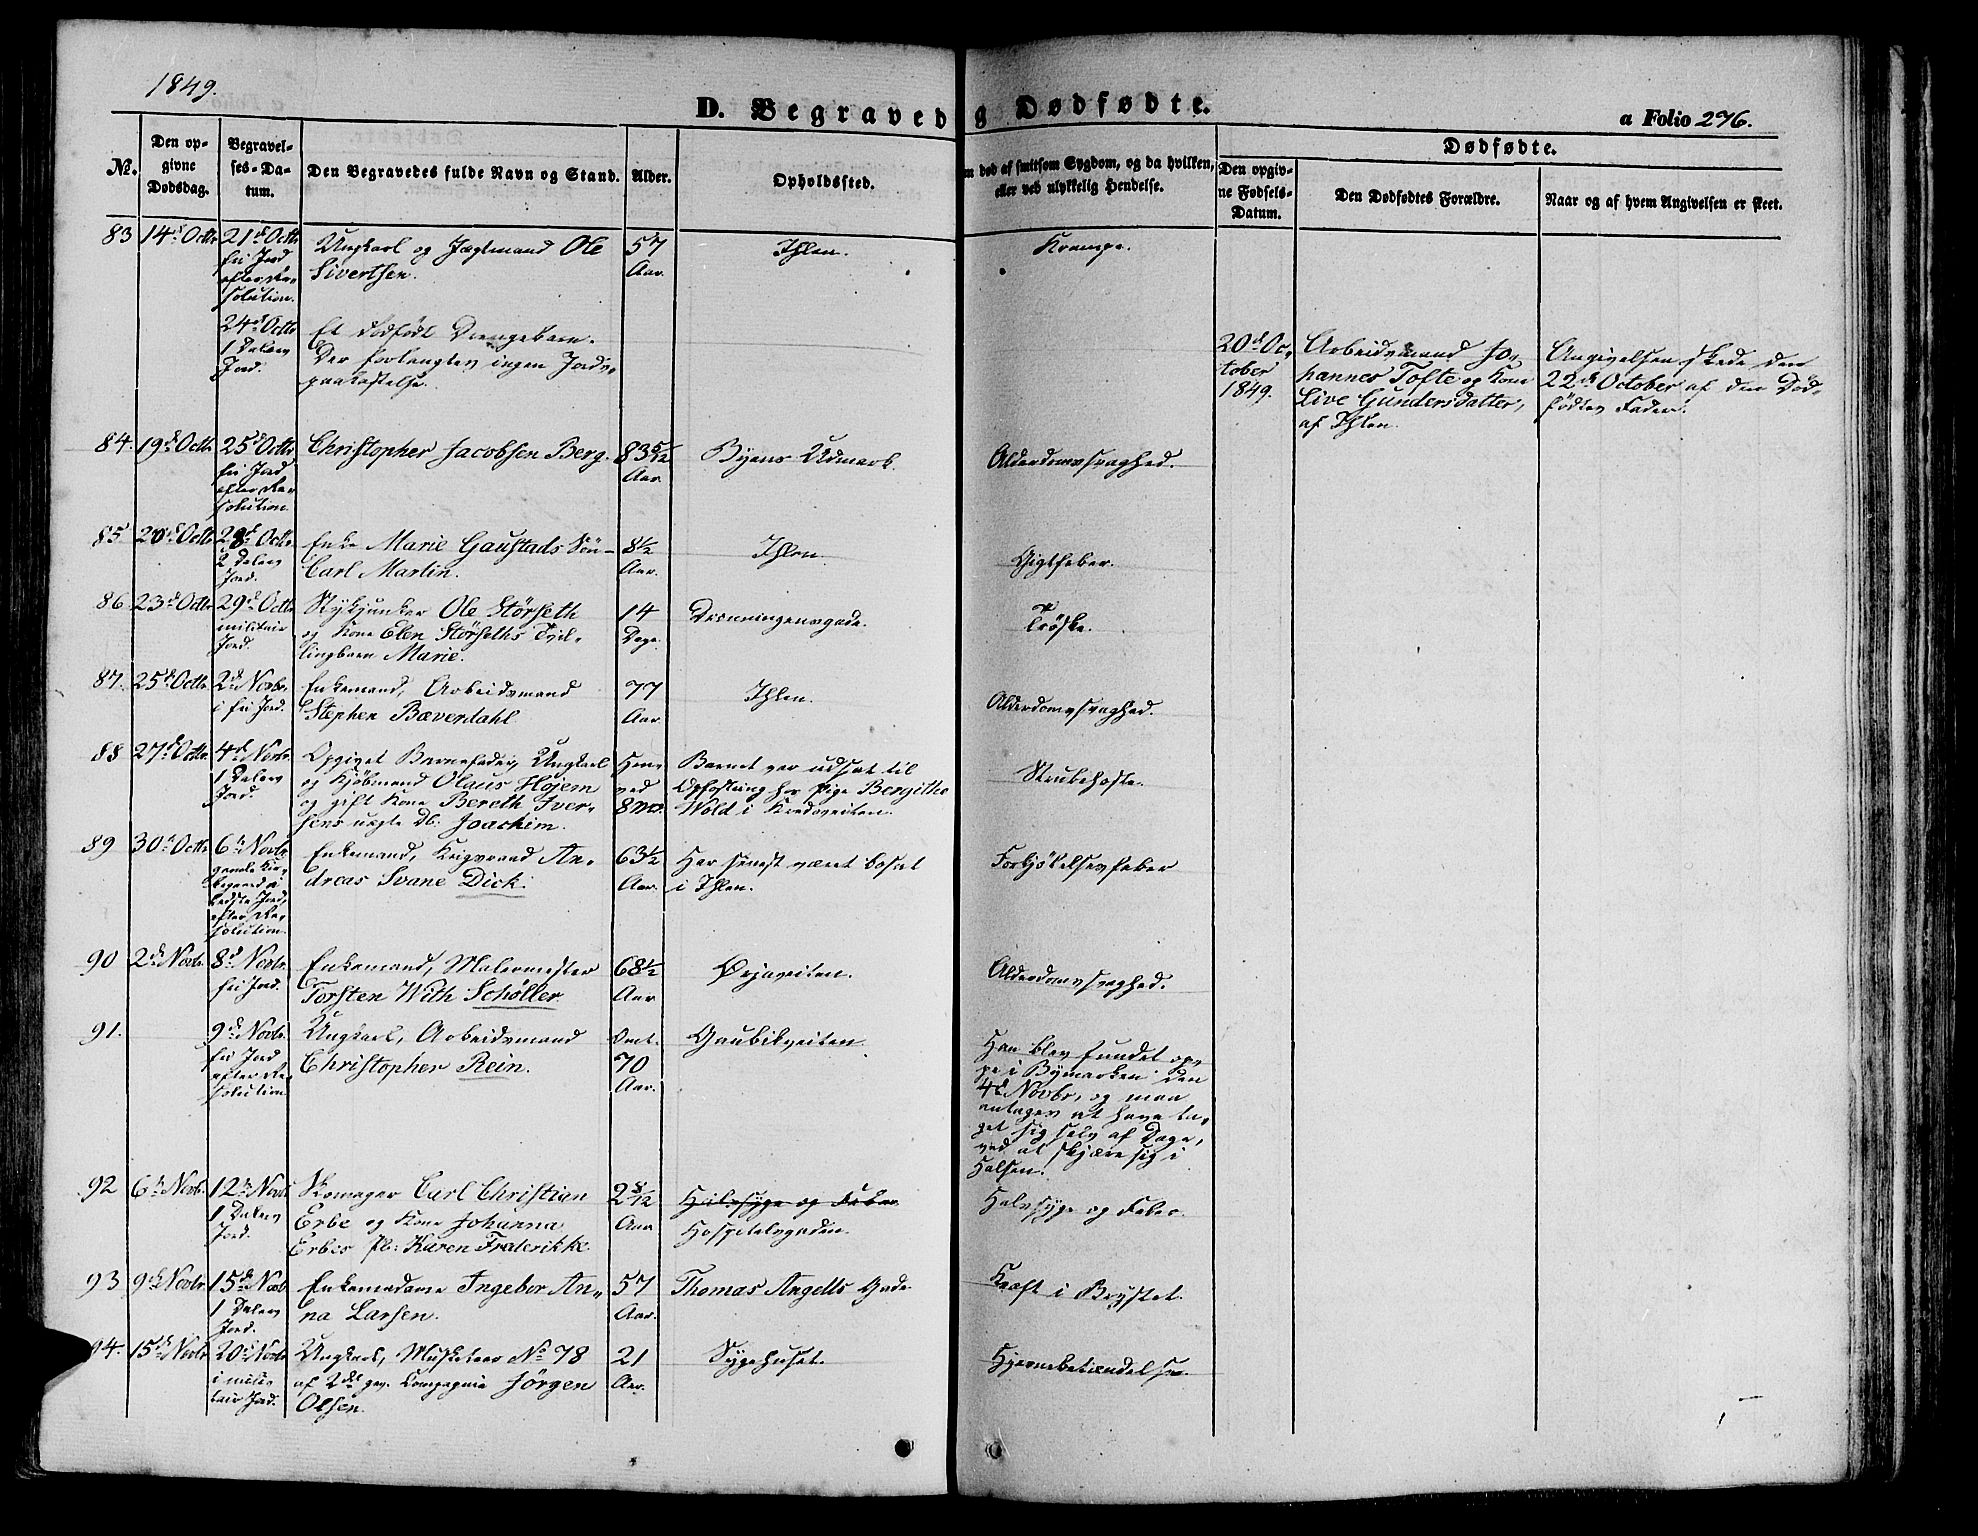 1849.
D. Begraved
g Dødfødte.
a Folio 296.
No.
Den op-
givne
Dødsdag.
Begravel-
ses-Da-
tum.
Den Begravedes fulde Navn og Stand.
Alder.
Opholdssted.
m død af smitsom Sygdom, og da hvilken,
eller ved ulykkelig Hendelse.
Dødfødte.
Den opgiv-
ne Fødsels-
Datum.
Den Dødfødtes Forældre.
Naar og af hvem Angivelsen er skeet.
83 14de Octbr 21de Octbr
fri Jord
efter Re-
solution.
Ungkarl og Jægtmand Ole
Sivertsen.
57
Aar.
Ihlen.
Krampe.
24de Octbr
1 Dalers
Jord.
Et dødfødt Drengebarn.
Der forlangtes ingen Jords-
paakastelse.
20de Oc-
tober
1849.
Arbeidsmand Jo-
hannes Tofte og Kone
Live Gundersdatter,
af Ihlen.
Angivelsen skede den
22de October af den Død-
fødtes Fader.
84. 19de Octbr 25de Octbr
fri Jord
efter Re-
solution.
Christopher Jacobsen Berg.
83 5/12
Aar.
Byens Udmark.
Alderdomssvaghed.
85 20de Octbr 28de Octbr
2 Dalers
Jord.
Enke Marie Gaustads Søn
Carl Martin.
8 1/2
Aar.
Ihlen.
Gigtfeber.
86 23de Octbr 29de Octbr
militair
Jord.
Stykjunker Ole Störseth
og Kone Elen Störseths Tvil-
lingbarn Marie.
14
Dage.
Dronningensgade.
Trøske.
87. 25de Octbr 2de Novbr.
i fri Jord.
Enkemand, Arbeidsmand
Stephen Bæverdahl
77
Aar.
Ihlen.
Alderdomssvaghed.
88 27de Octbr. 4de Novbr.
1 Dalers
Jord.
Opgivet Barnefader Ungkarl
og Kjøbmand Olaus Höjem
og gift Kone Bereth Iver-
sens uægte Db: Joachim.
Hen-
ved
8 mdr.
Barnet var udsat til
Opfostring hos Pige Bergithe
Wold i Kredsveiten.
Strubehoste.
89 30de Octbr 6te Novbr.
gamle Kir-
kegaard i
bedste Jord,
efter Re-
solution.
Enkemand, Krigsraad An-
dreas Svane Dick.
63 1/2
Aar.
Har senest været bosat
i Ihlen.
Forkjölelsesfeber
90 2de Novbr. 8de Novbr.
fri Jord.
Enkemand, Malermester
Torsten With Schöller.
68 1/2
Aar
Ørjaveiten.
Alderdomssvaghed.
91. 9de Novbr.
fri Jord
efter Re-
solution
Ungkarl, Arbeidsmand
Christopher Rein.
Omt.
70
Aar.
Gaubikveiten.
Han blev fundet op-
pe i Bymarken den
4de Novbr, og man
antager at have ta-
get sig selv af Dage,
ved at skjære sig i
Halsen.
92 6te Novbr. 12te Novbr
1 Dalers
Jord.
Skomager Carl Christian
Erbe og Kone Johanna
Erbes Pb: Karen Frederikke
2 8/12
Aar
Halssyge og Feber
Hospitalsgaden.
Halssyge og Feber.
93 9de Novbr. 15de Novb
1 Dalers
Jord.
Enkemadame Ingebor An-
na Larsen.
57
Aar.
Thomas Angells Gade
Kræft i Brystet.
94. 15de Novbr 20de Novbr
i mili-
tair Jord.
Ungkarl, Musketeer No 78
af 2det gev. Compagnie Jörgen
Olsen.
21
Aar.
Sygehuset.
Hjernebetændelse.